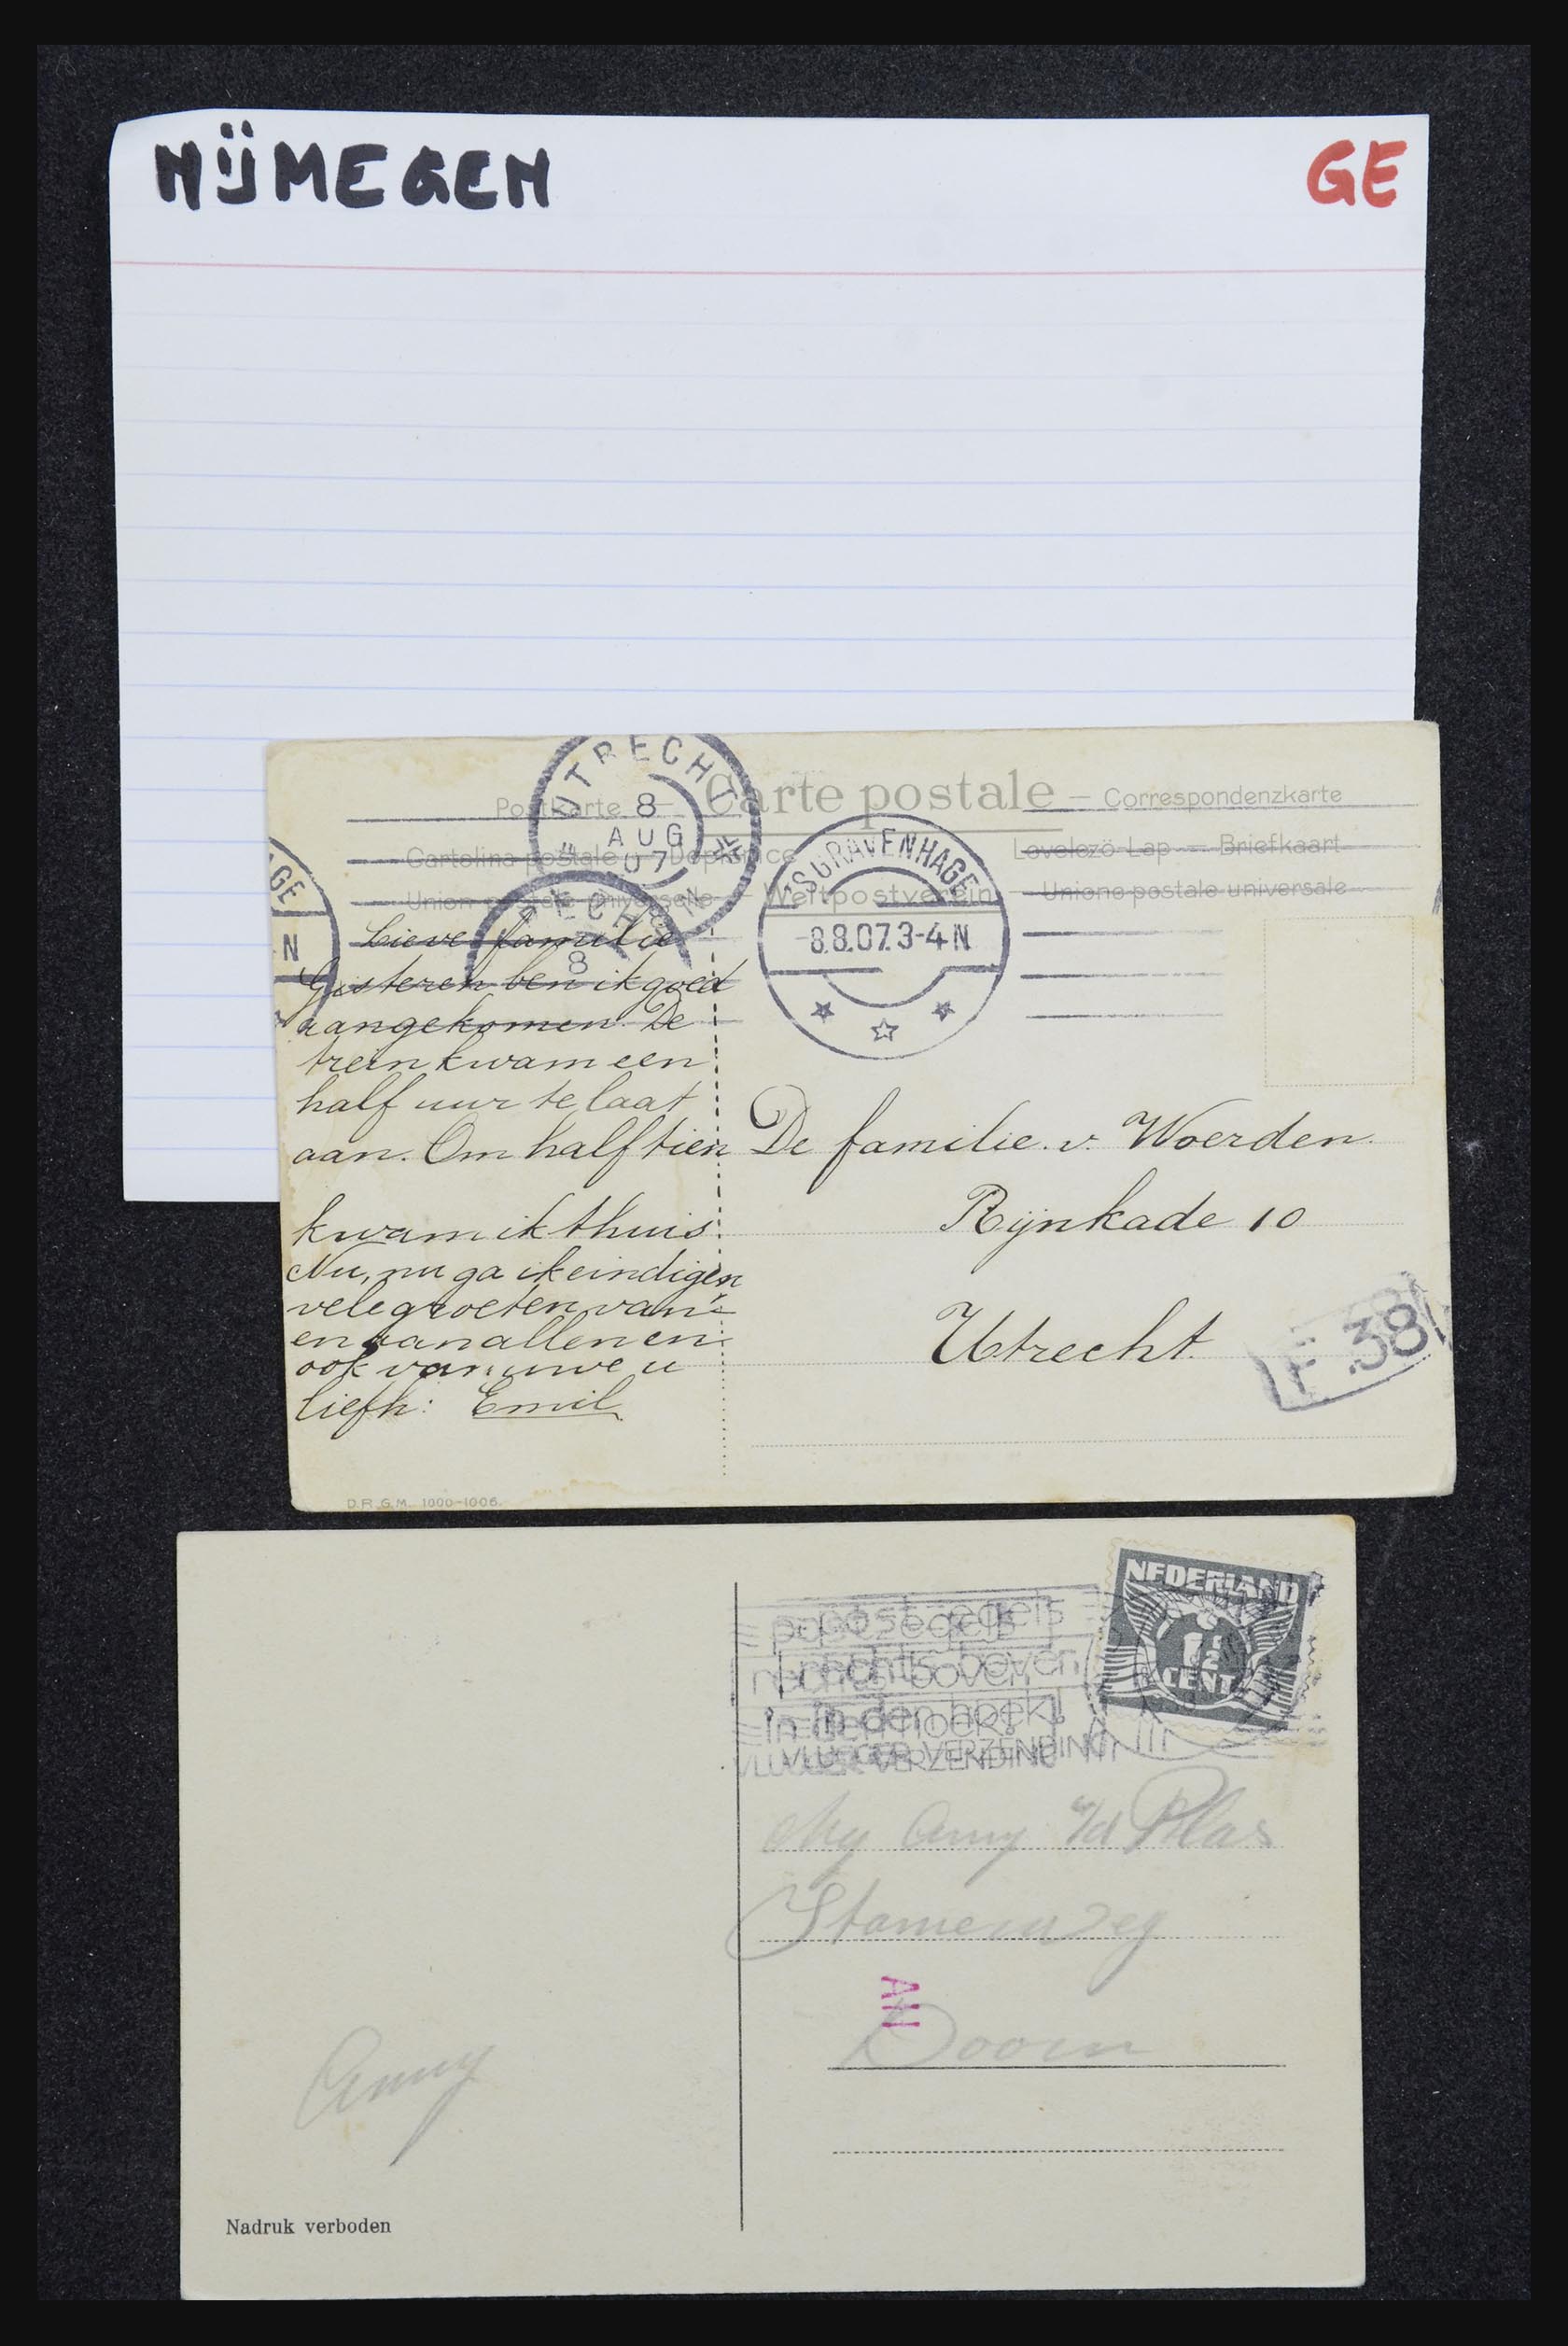 NIJMEGEN
GE
Carte postale
Postkarte
Correspondenzkarte
Cartolina postale
Dopisnice
Levelező-Lap — Briefkaart
Union postale universelle — Weltpostverein — Unione postale universale
UTRECHT
8
AUG
07
'SGRAVENHAGE
8.8.07.3-4 N
AGE
N
8
Lieve familie
Gisteren ben ik goed
aangekomen. De
trein kwam een
half uur te laat
aan. Om half tien
kwam ik thuis.
Nu, nu ga ik eindigen
vele groeten van
en aan allen en
ook van uwe u
liefh: Emil
De familie v. Woerden
Rijnkade 10
Utrecht.
F 38
D.R.G.M. 1000-1006.
NEDERLAND
1½
CENT
postzegels
rechts boven
in den hoek!
VLUGGER VERZENDING
Anny v/d Plas
Doorn
AH
Anny
Nadruk verboden